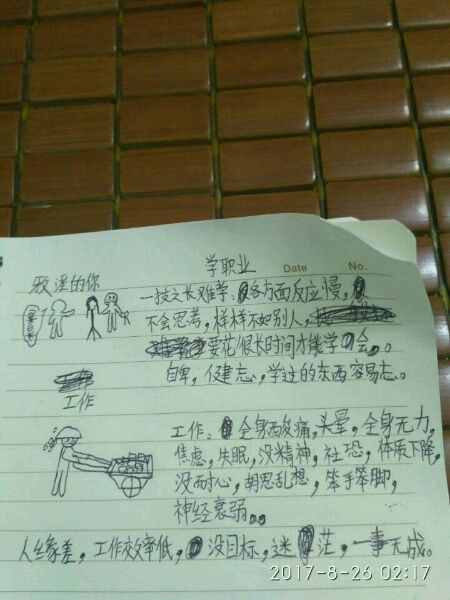 学职业
Date No.
邪淫的你
一技之长难学：各方面反应慢，
不会思考，样样不如别人，
要花很长时间才能学会。
自卑，健忘，学过的东西容易忘。
工作
工作：全身酸痛，头晕，全身无力，
焦虑，失眠，没精神，社恐，体质下降，
没耐心，胡思乱想，笨手笨脚，
神经衰弱。
人缘差，工作效率低，没目标，迷茫，一事无成。
2017-8-26 02:17